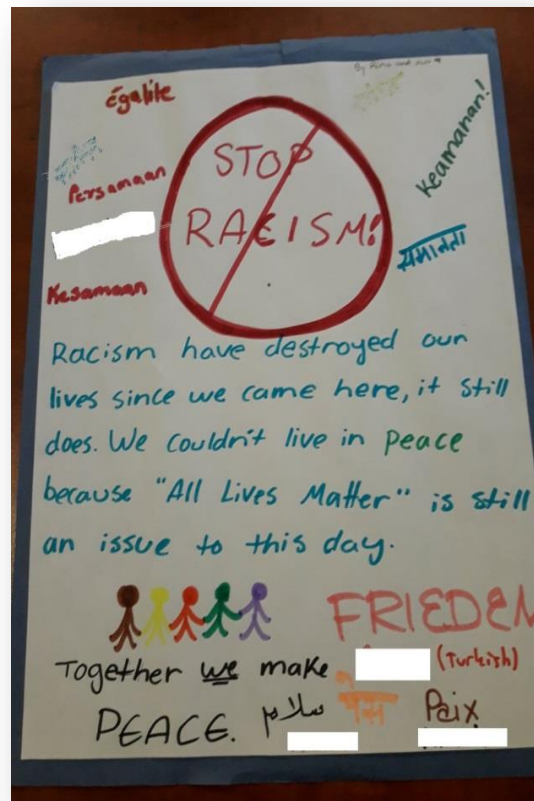 égalité
Keamanan!
Persamaan
STOP
RACISM!
समानता
Kesamaan
Racism have destroyed our
lives since we came here, it still
does. We couldn't live in peace
because "All Lives Matter" is still
an issue to this day.
FRIEDEN
Together we make
(Turkish)
PEACE. سلام पेस Paix